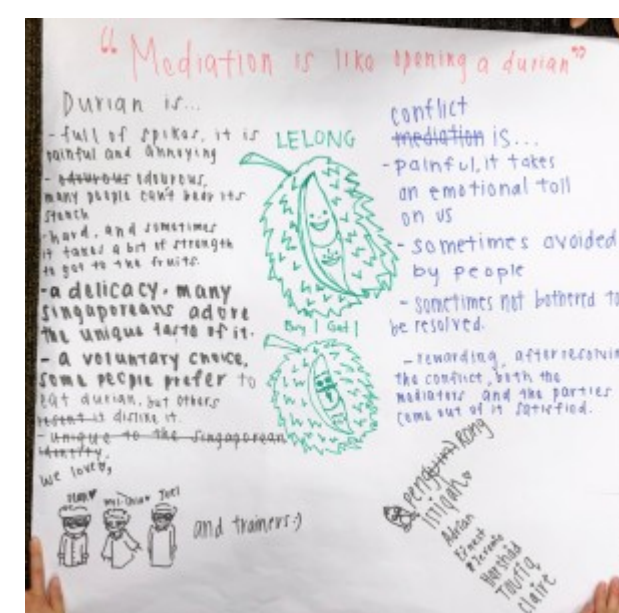 "Mediation is like opening a durian"
Durian is...
- full of spikes, it is
painful and annoying
- odourous odourous,
many people can't bear its
stench
- hard, and sometimes
it takes a bit of strength
to get to the fruits.
- a delicacy. many
singaporeans adore
the unique taste of it.
- a voluntary choice,
some people prefer to
eat durian, but others
dislike it.
- unique to the singaporean
identity.
we love,
Joel
and trainers:)
LELONG
Buy 1 Get 1
conflict
mediation is...
- painful, it takes
an emotional toll
on us
- sometimes avoided
by people
- sometimes not bothered to
be resolved.
- rewarding, after resolvin
the conflict, both the
mediators and the parties
come out of it satisfied.
peng RONG
Adrian
Ernest
Jeremy
Harshad
Toufiq
claire